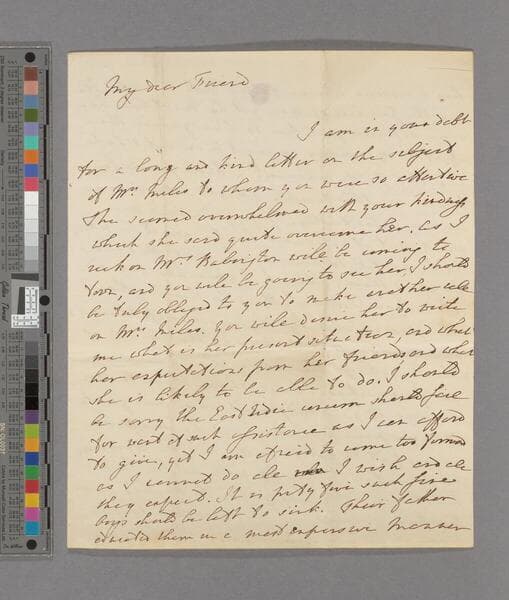 My dear Friend
I am in your debt
for a long and kind letter on the subject
of Mrs. Miles to whom you were so attentive
She seemed overwhelmed with your kindness
which she said quite overcame her. As I
reckon Mrs Babington will be coming to
Town, and you will be going to see her, I should
be truly obliged to you to make another call
on Mrs Miles. You will desire her to write
me what is her present situation, and what
her expectations from her friends and what
she is likely to be able to do. I should
be sorry the East India concern should fail
for want of such assistance as I can afford
to give, yet I am afraid to come too forward
as I cannot do all I wish and all
they expect. It is pity five such fine
boys should be left to sink. Their father
educated them in a most expensive manner